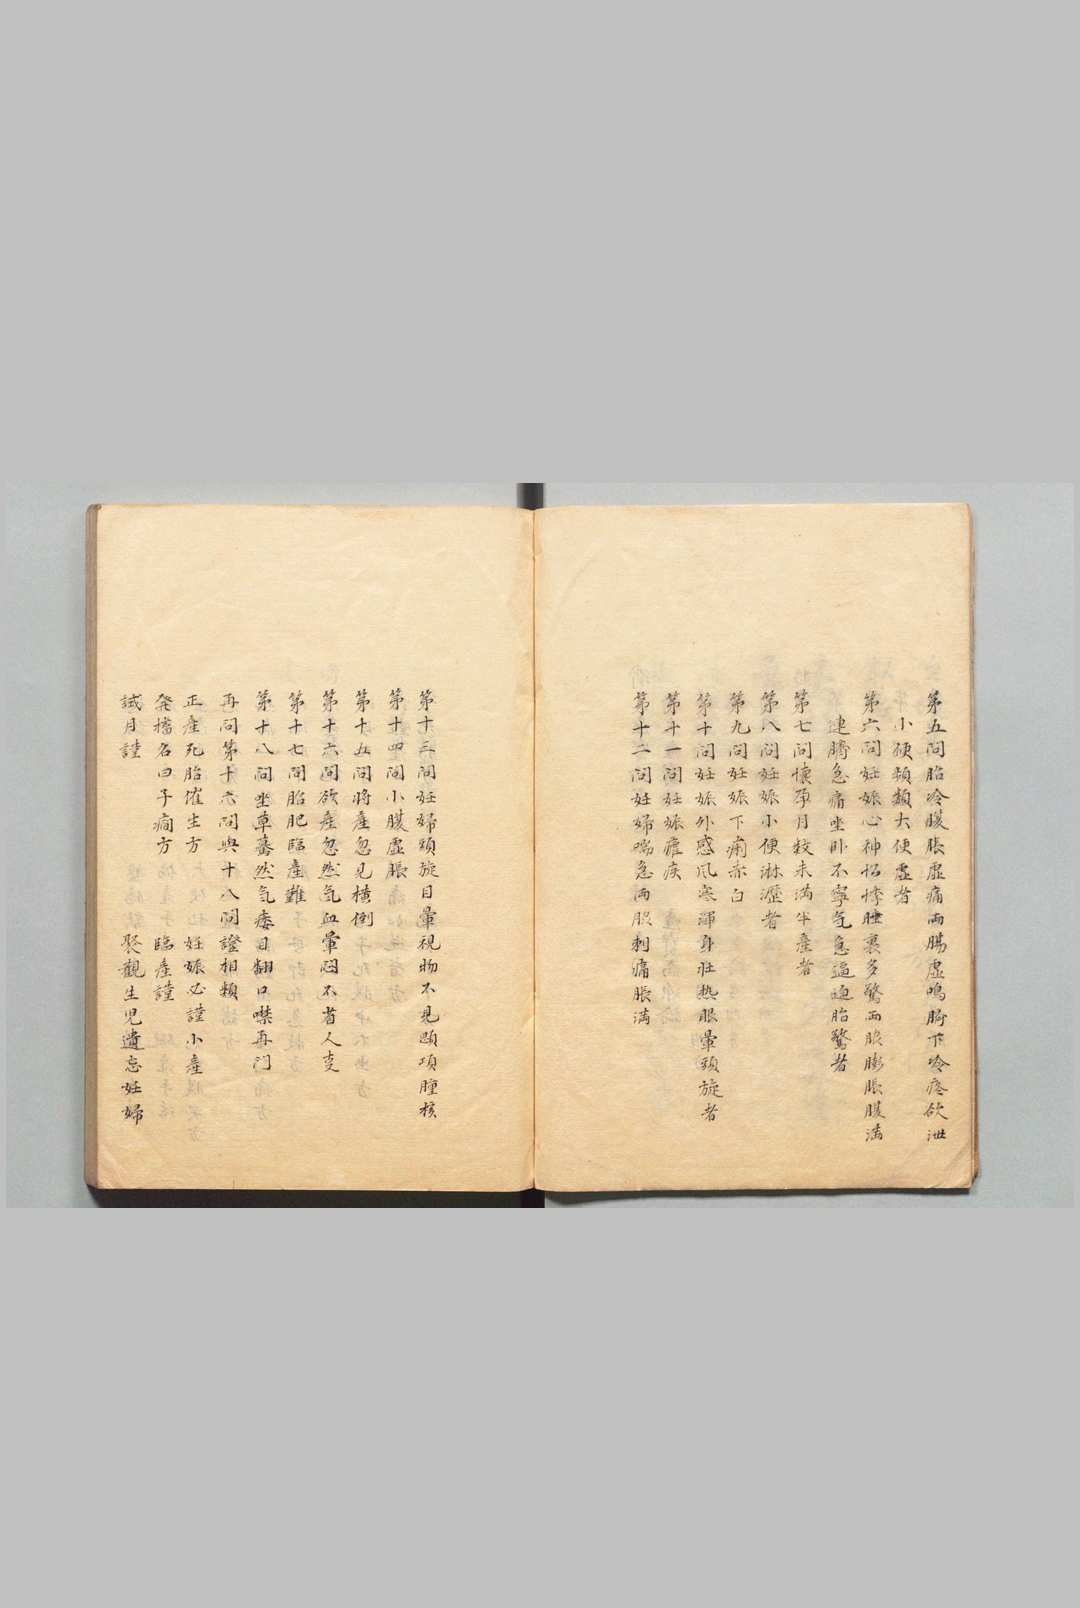 第五問胎冷腹脹虛痛両腸虛鳴臍下冷疼欲泄
小便頻類大便虛者
第六問妊娠心神怊悸睡裏多驚両脹膨脹腹満
連臍急痛坐卧不寧气急逼迫胎驚者
第七問懐孕月数未満半産者
第八問妊娠小便淋瀝者
第九問妊娠下痢赤白
第十問妊娠外感風寒渾身壮热眼暈頭旋者
第十一問妊娠瘧疾
第十二問妊婦喘急両脇刺痛脹満
第十三問妊婦頭旋目暈視物不見頤項腫核
第十四問小腹虛脹
第十五問将産忽見横倒
第十六問欲産忽然气血暈悶不省人支
第十七問胎肥臨産難
第十八問坐草蓦然气痿目翻口噤再門
再問第十六問與十八問證相類
正産死胎催生方 妊娠必謹小産
発搐名曰子癇方 臨産謹
試月謹 聚觀生児遺忘妊婦